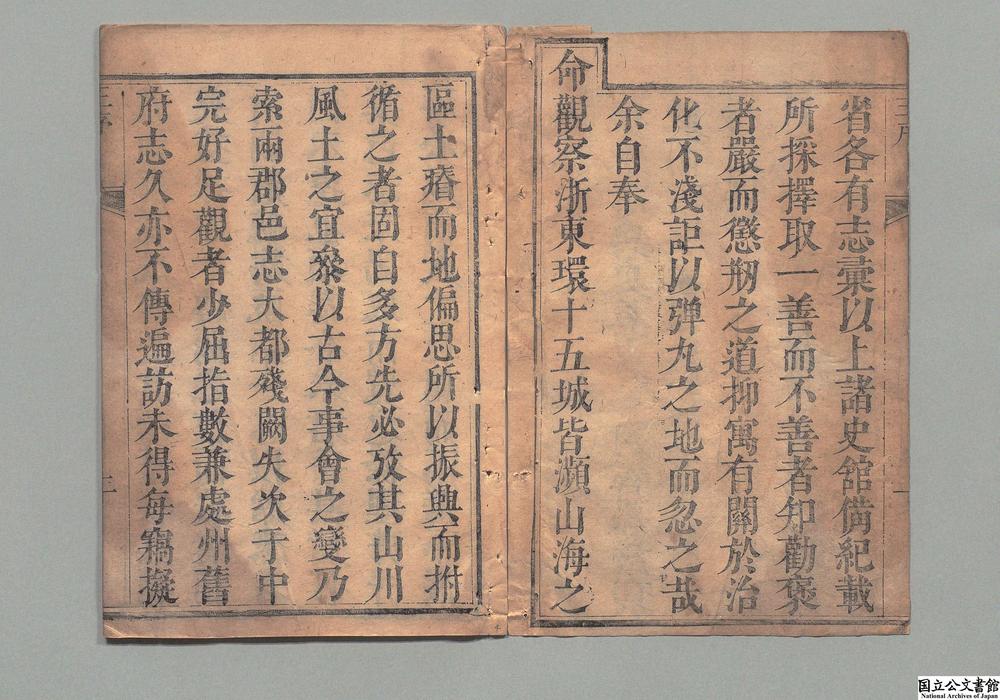 省各有志彙以上諸史舘偹紀載
所採擇取一善而不善者知勸褒
者嚴而懲剏之道抑寓有關於治
化不淺詎以弾丸之地而忽之哉
余自奉
命觀察浙東環十五城皆瀕山海之
區土瘠而地偏思所以振興而拊
循之者固自多方先必攷其山川
風土之宜叅以古今事會之變乃
索兩郡邑志大都殘闕失次于中
完好足觀者少屈指數兼處州舊
府志久亦不傳遍訪未得每竊擬
一
二
国立公文書館
National Archives of Japan